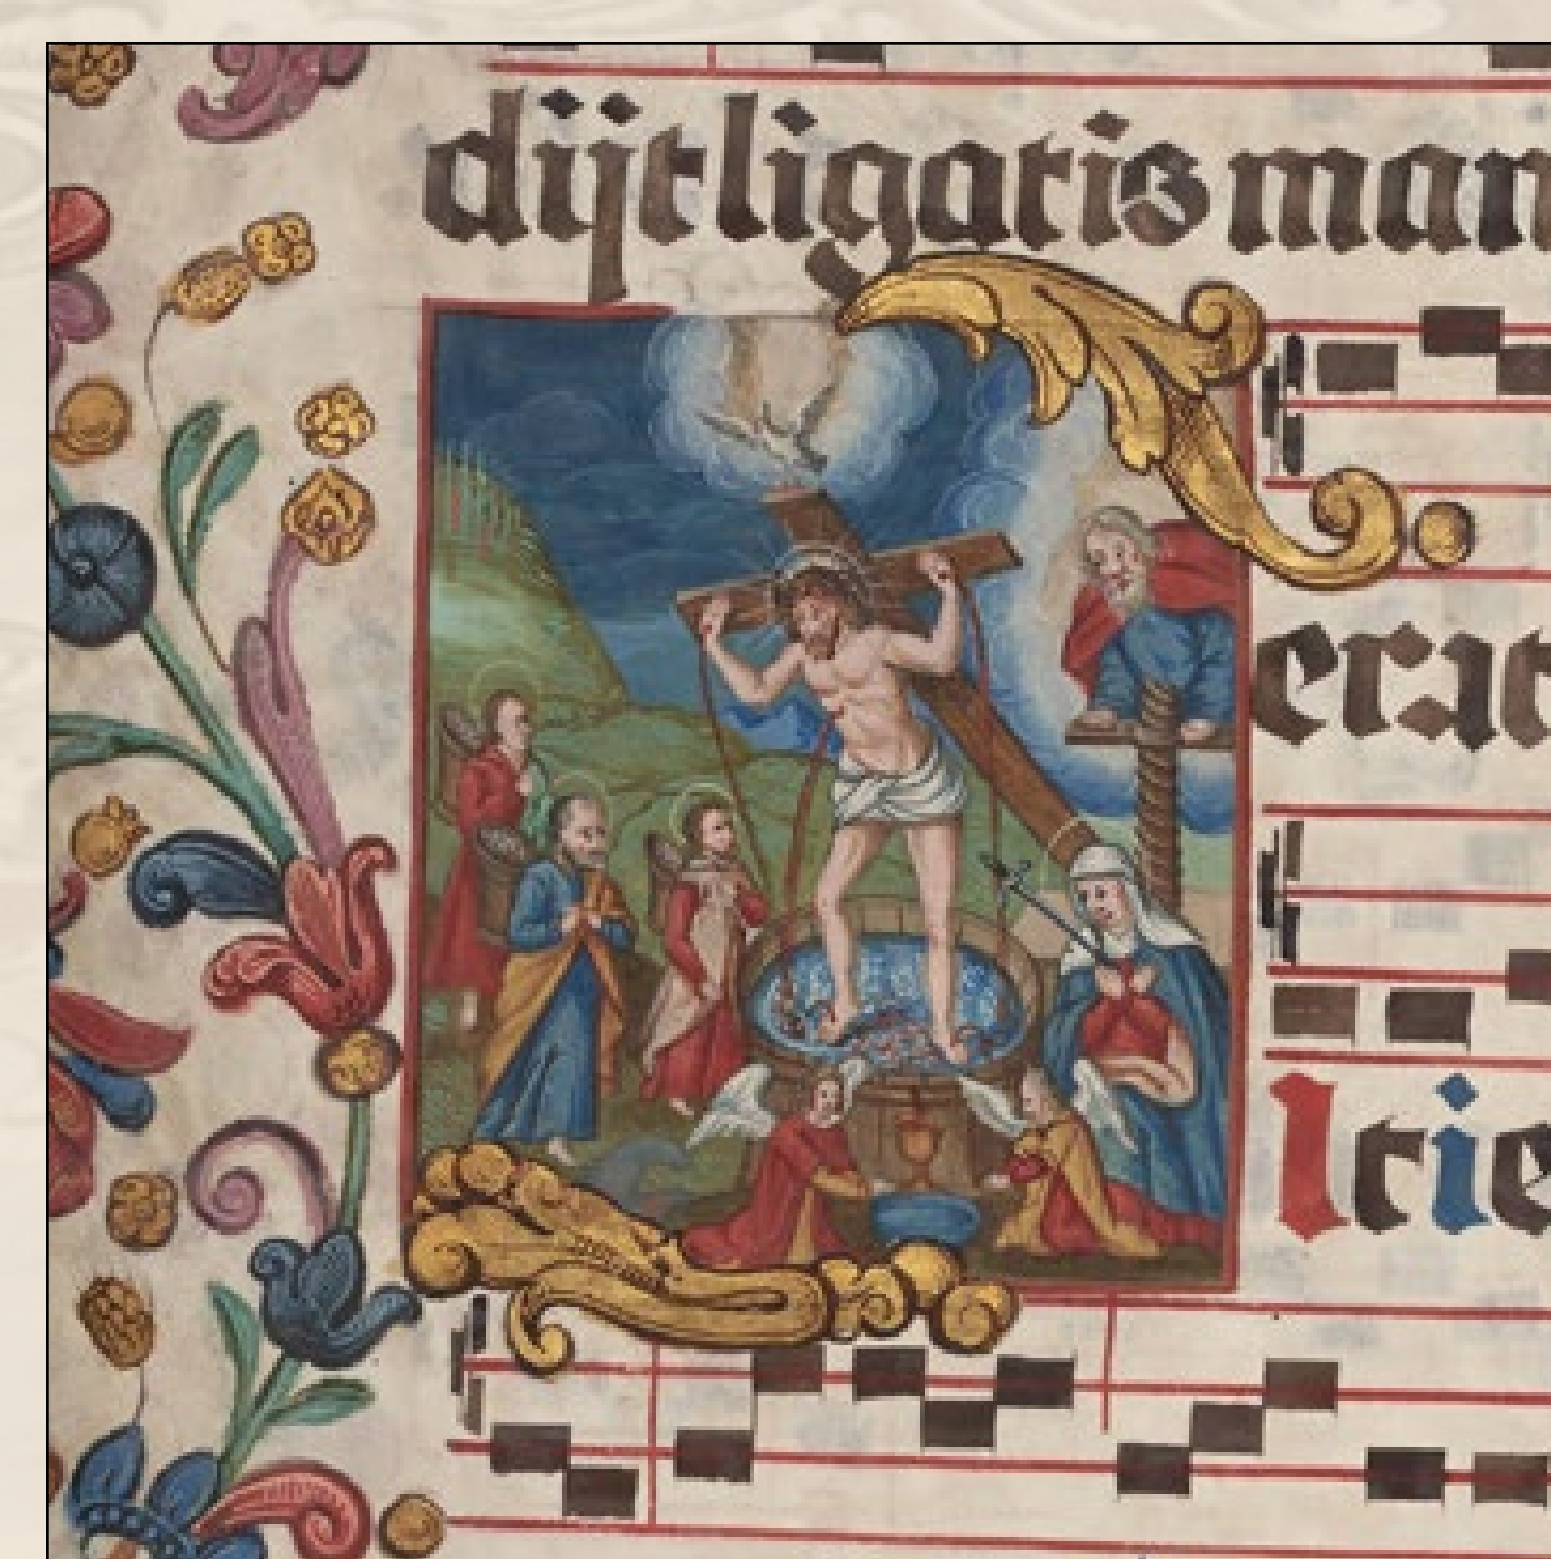 dijt ligatis man
erat